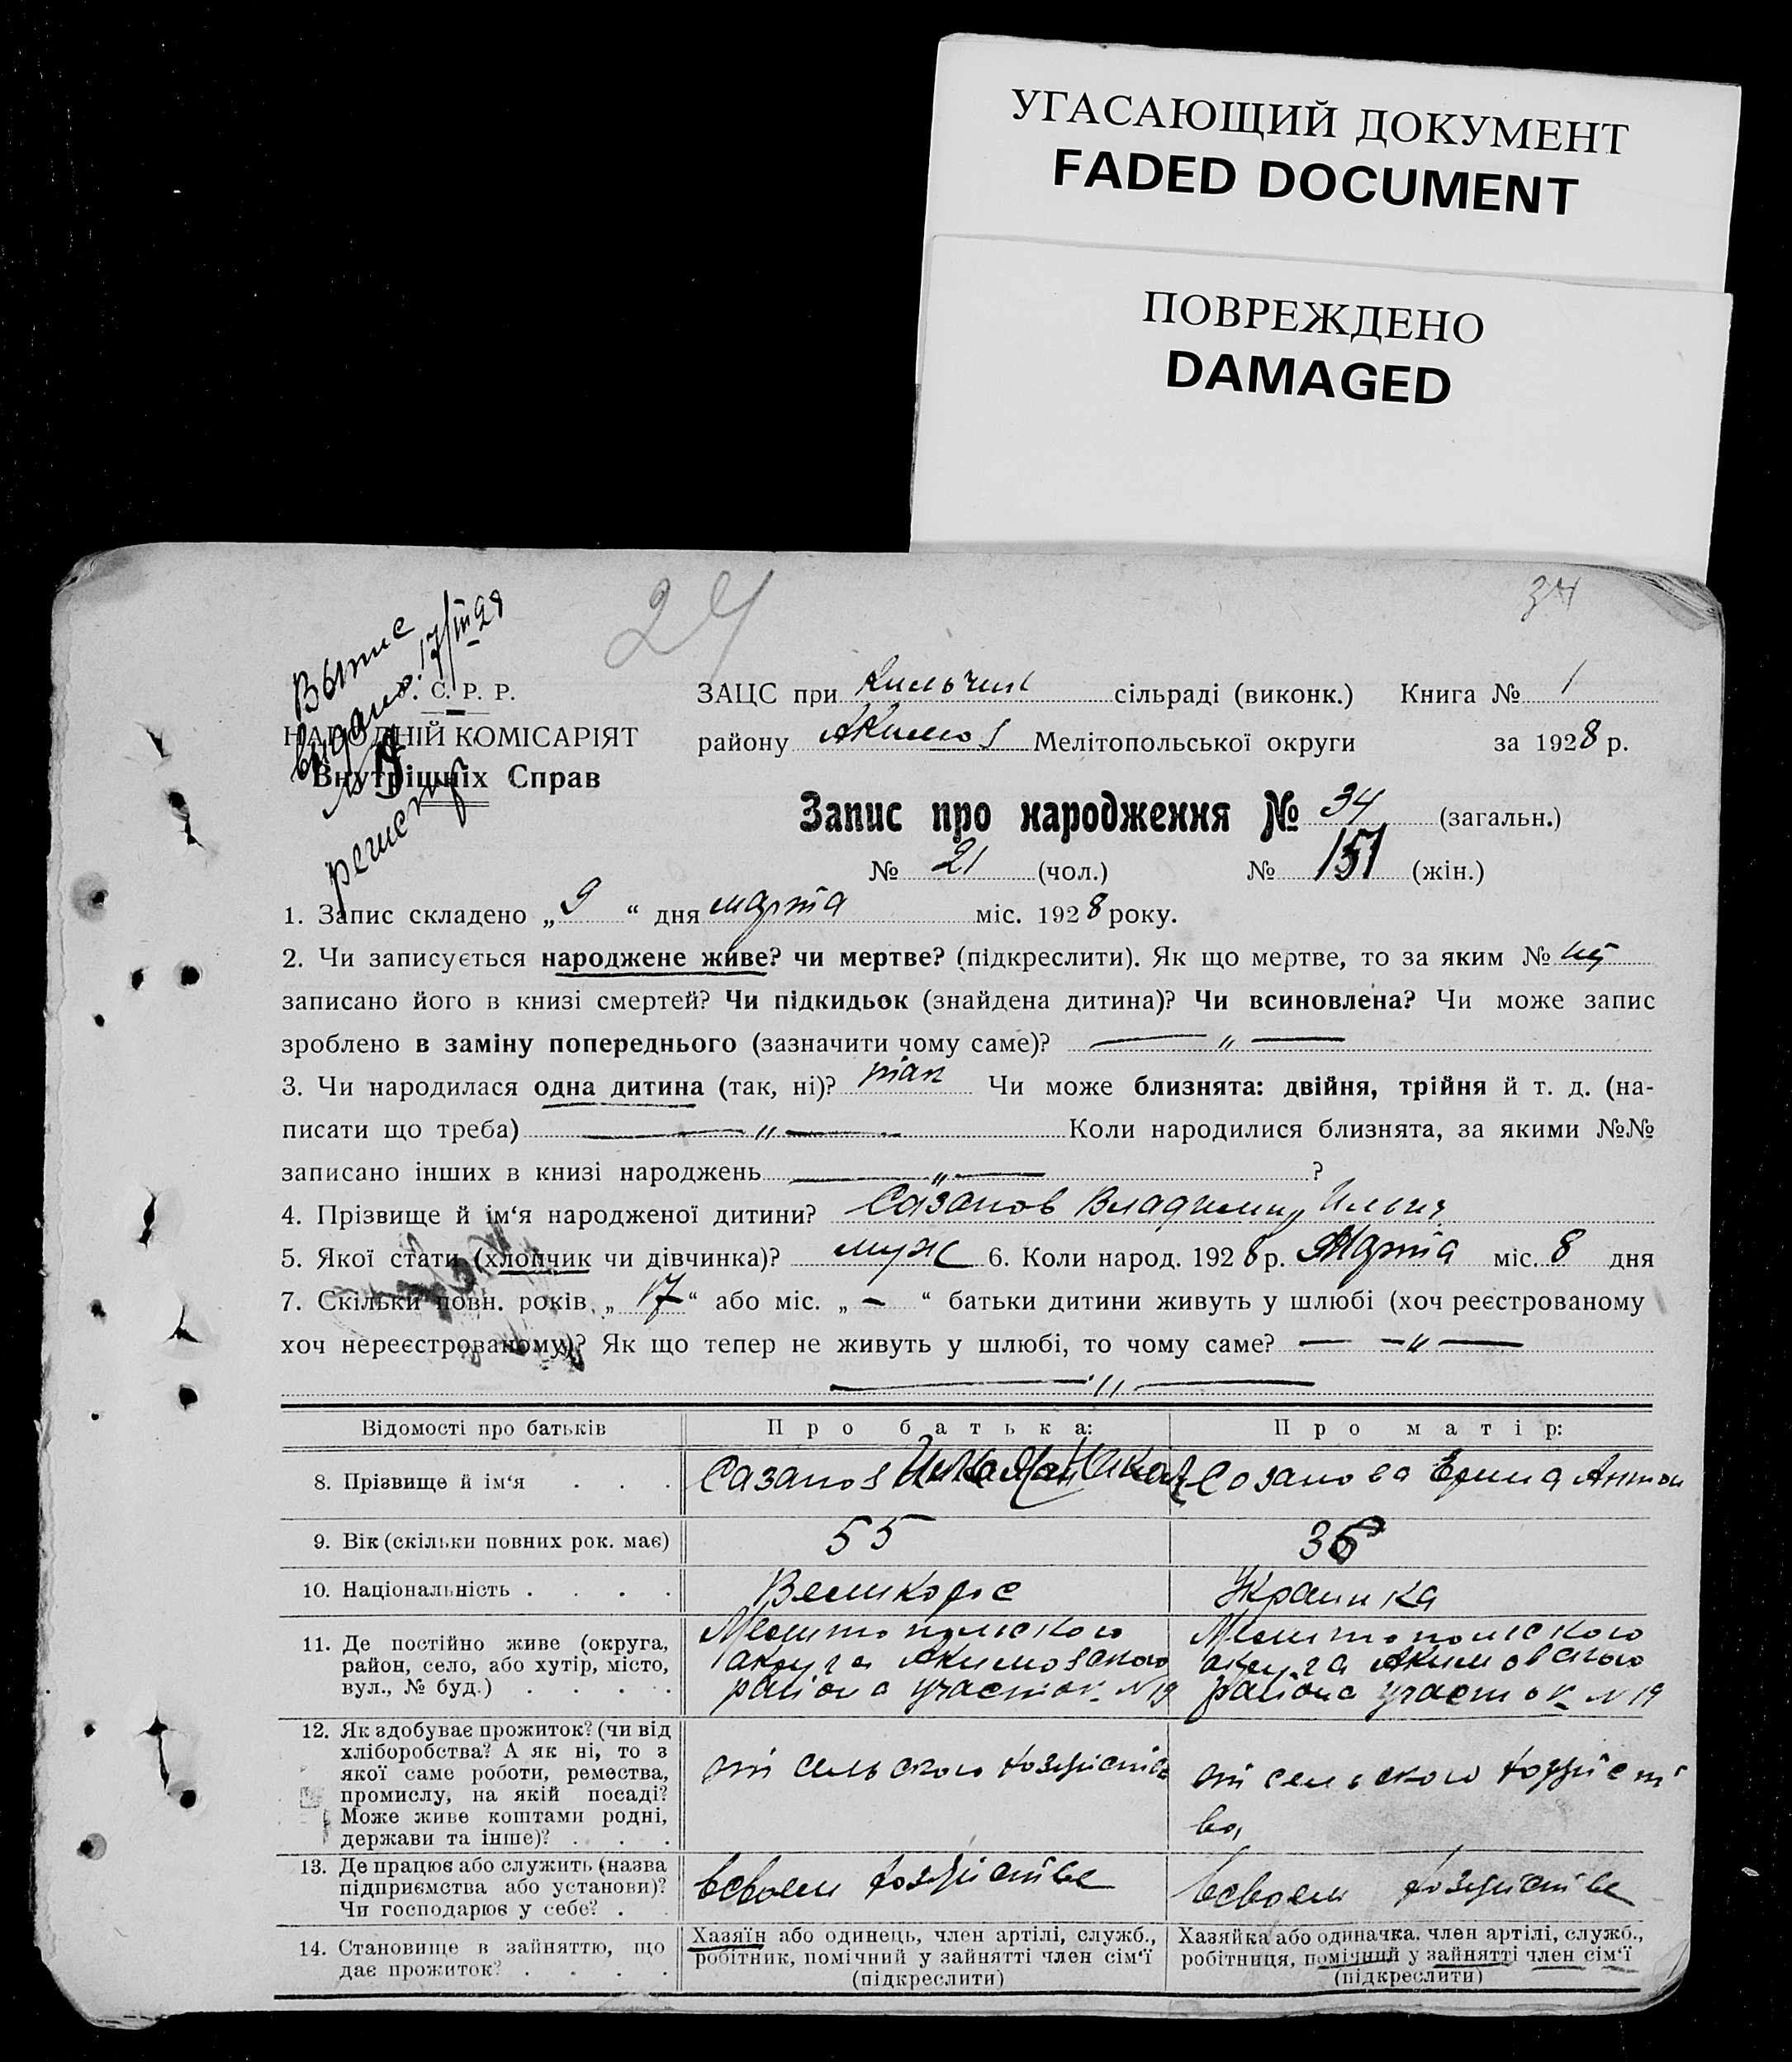 УГАСАЮЩИЙ ДОКУМЕНТ
FADED DOCUMENT
ПОВРЕЖДЕНО
DAMAGED
24
34
17/III 28
У. С. Р. Р.
НАРОДНІЙ КОМІСАРІЯТ
Внутрішніх Справ
ЗАЦС при сільраді (виконк.) Книга № 1
району Акимов Мелітопольської округи за 1928 р.
Запис про народження № 34 (загальн.)
№ 21 (чол.) № (жін.)
1. Запис складено „ 9 “ дня марта міс. 1928 року.
2. Чи записується народжене живе? чи мертве? (підкреслити). Як що мертве, то за яким №
записано його в книзі смертей? Чи підкидьок (знайдена дитина)? Чи всиновлена? Чи може запис
зроблено в заміну попереднього (зазначити чому саме)? — „ —
3. Чи народилася одна дитина (так, ні)? так Чи може близнята: двійня, трійня й т. д. (на-
писати що треба) — „ — Коли народилися близнята, за якими №№
записано інших в книзі народжень — „ — ?
4. Прізвище й ім‘я народженої дитини? Сазанов Владимир Ильич
5. Якої стати (хлопчик чи дівчинка)? муж 6. Коли народ. 1928 р. Марта міс. 8 дня
7. Скільки повн. років „ 17 “ або міс. „ — “ батьки дитини живуть у шлюбі (хоч реєстрованому
хоч нереєстрованому)? Як що тепер не живуть у шлюбі, то чому саме? — — „ —
— „ —
Відомості про батьків Про батька: Про матір:
8. Прізвище й ім‘я . . . Сазанов Илья Созанова Антон
9. Вік (скільки повних рок. має) 55 36
10. Національність . . . . Великорос Украинка
11. Де постійно живе (округа, район, село, або хутір, місто, вул., № буд.) . . . .
Мелитополского
округа Акимовского
района участок N 19
Мелитополского
округа Акимовского
района участок N 19
12. Як здобуває прожиток? (чи від
хліборобства? А як ні, то з
якої саме роботи, ремества,
промислу, на якій посаді?
Може живе коштами родні,
держави та інше)? . . .
от сельского хозяйства
от сельского хозяйст
ва
13. Де працює або служить (назва
підприємства або установи)?
Чи господарює у себе? .
всвоем хозяйстве
всвоем хозяйстве
14. Становище в зайняттю, що
дає прожиток? . . . .
Хазяїн або одинець, член артілі, служб.,
робітник, помічний у зайнятті член сім‘ї
(підкреслити)
Хазяйка або одиначка. член артілі, служб.,
робітниця, помічний у зайнятті член сім‘ї
(підкреслити)